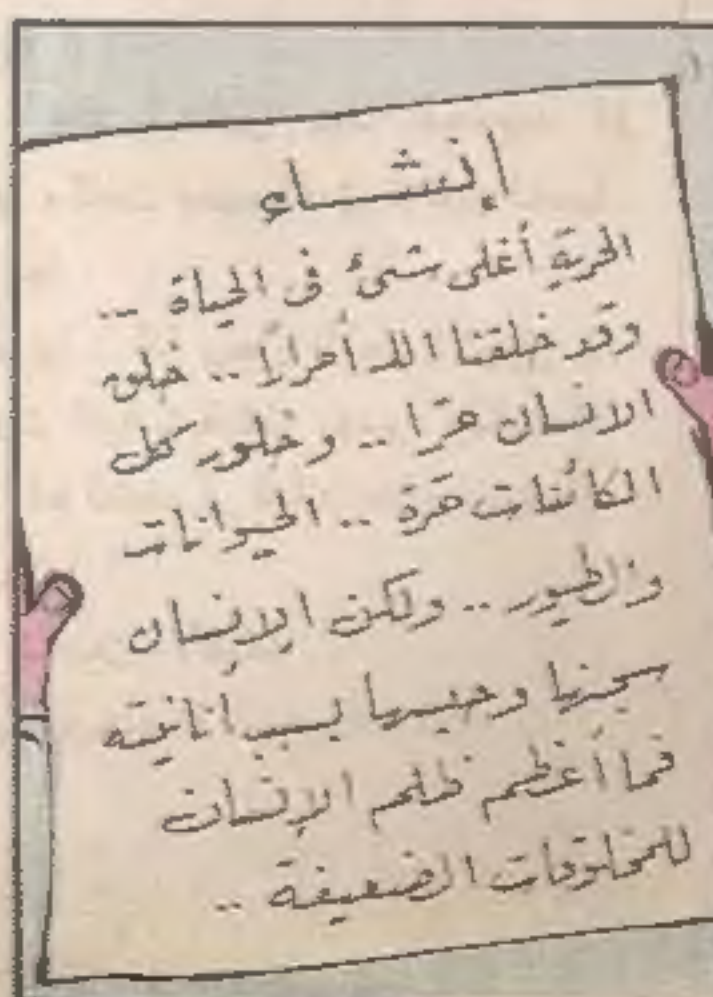 إنشاء
الحرية أغلى شئ فى الحياة ..
وقد خلقنا الله أحرارًا .. خلق
الانسان حرًا .. وخلق كل
الكائنات حرة .. الحيوانات
والطيور .. ولكن الإنسان
سجنها وحبسها بسبب أنانيته
فما أعظم ظلم الإنسان
للمخلوقات الضعيفة ..